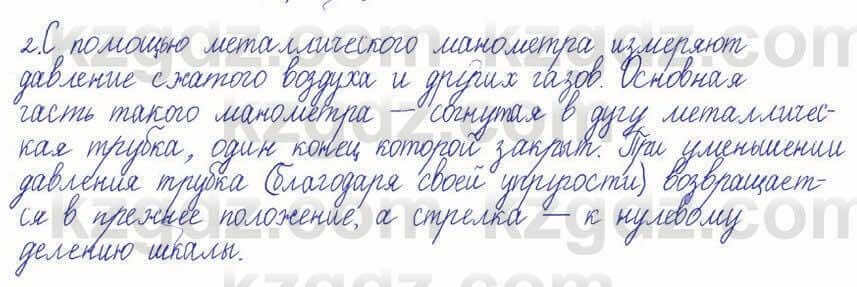 2. С помощью металлического манометра измеряют
давление сжатого воздуха и других газов. Основная
часть такого манометра — согнутая в дугу металличес-
кая трубка, один конец которой закрыт. При уменьшении
давления трубка (благодаря своей упругости) возвращает-
ся в прежнее положение, а стрелка — к нулевому
делению шкалы.